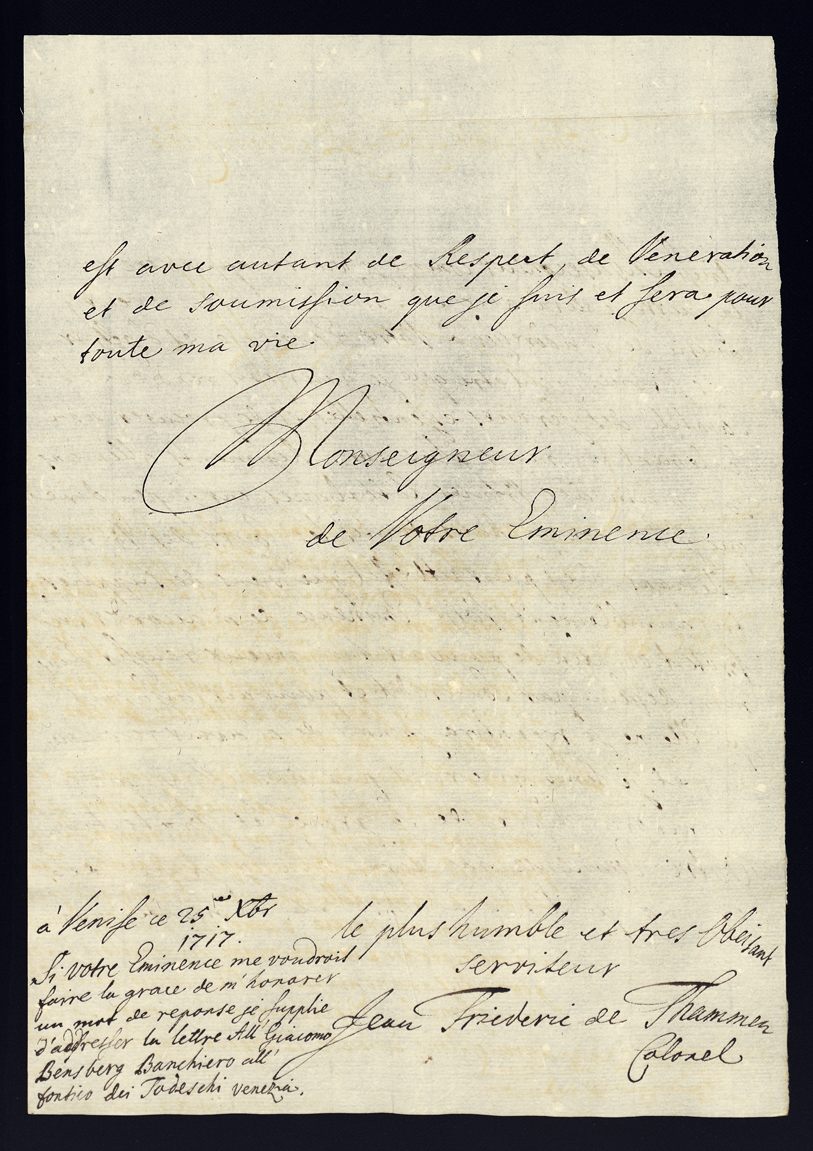 est avec autant de Respect, de Veneration
et de soumission que je suis et sera pour
toute ma vie.
Monseigneur
de Votre Eminence.
à Venise ce 25me Xbr
1717.
Si votre Eminence me voudroit
faire la grace de m'honarer
un mot de reponse je supplie
d'addresser la lettre All' Giacomo
Bensberg Banchiero all'
fontico dei Todeschi venezia.
le plus humble et tres Obeisant
serviteur
Jean Friederic de Thammen
Colonel